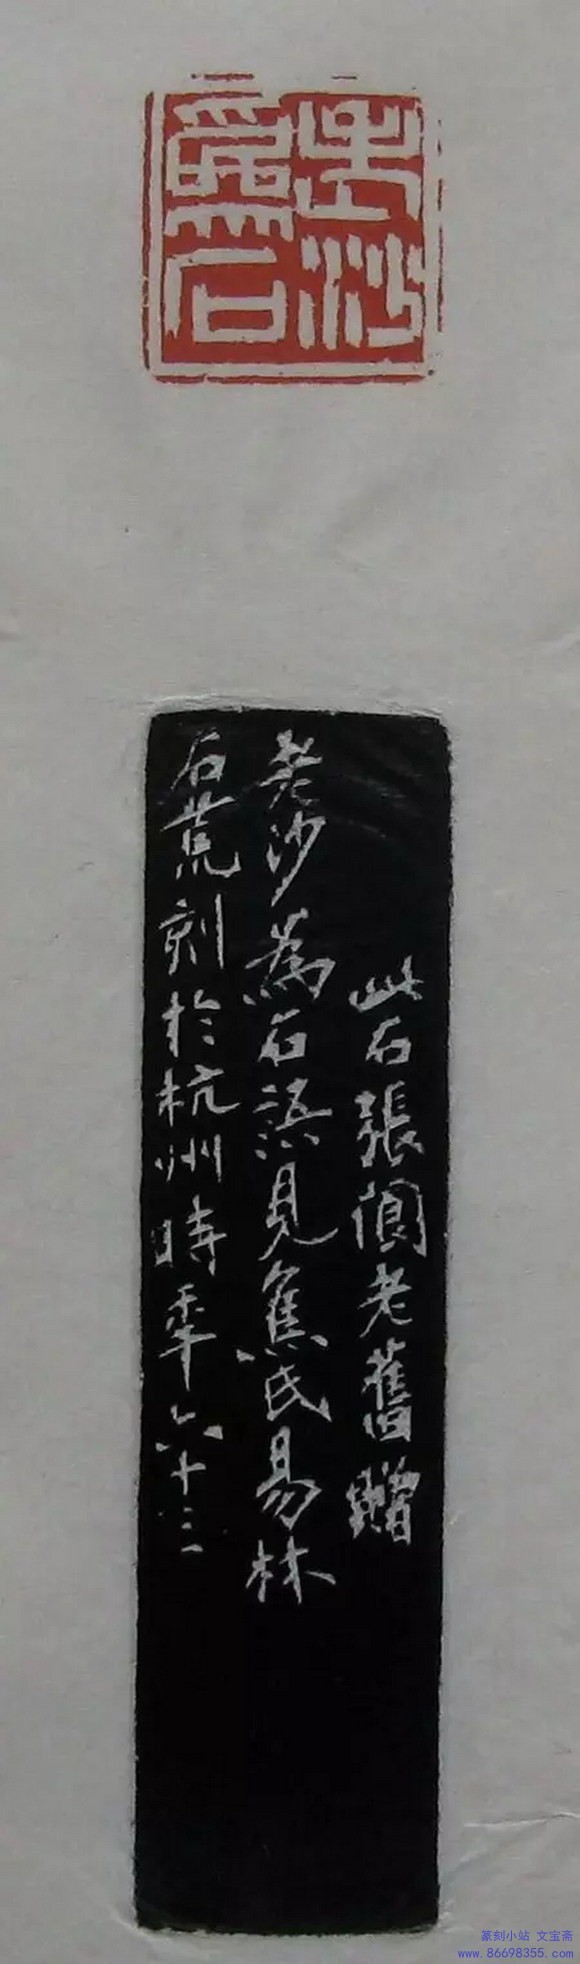 老沙
為石
此石張閬老舊贈
老沙為石語見焦氏易林
石荒刻於杭州時年六十三
篆刻小站 文宝斋
www.86698355.com